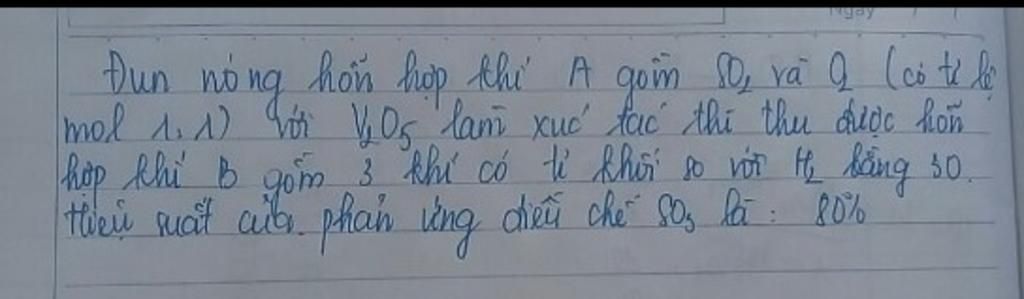 Ngày
Đun nóng hỗn hợp khí A gồm SO₂ và O₂ (có tỉ lệ
mol 1:1) với V₂O₅ làm xúc tác thì thu được hỗn
hợp khí B gồm 3 khí có tỉ khối so với H₂ bằng 30.
Hiệu suất của phản ứng điều chế SO₃ là: 80%